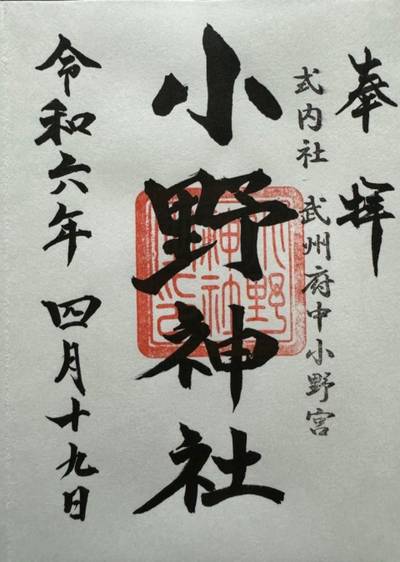 奉拝
式内社 武州府中小野宮
小野神社
令和六年 四月十九日